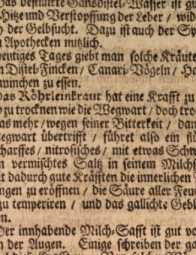 as destillirte Gänsdistel-Wasser ist gu
hitzen und Verstopffung der Leber / wi
h der Gelbsucht. Dazu ist auch der Sy
n Apothecken nutzlich.
eutiges Tages giebt man solche Kräute
n Distel-Fincken / Canari-Vögeln /
wunschen zu essen.
as Röhrleinkraut hat eine Krafft zu
zu trocknen wie die Wegwart / doch tro
as mehr / wegen seiner Bitterkeit / dan
egwart übertrifft / führet also ein fl
charffes / nitrosisches / mit etwas Schw
vermischtes Saltz in seinem Milchs
t dadurch gute Kräfften die innerlichen
ungen zu eröffnen / die Säure aller Feu
zu temperiren / und das gallichte Gebl
n.
er innhabende Milch-Safft ist gut vo
n der Augen. Einige schreiben der ga